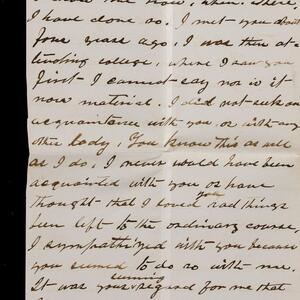 I have done so. I met you about
four years ago, I was then at-
tending college, where I saw you
first I cannot say nor is it
now material. I did not seek an
acquaintance with you, or with any
other body, You know this as well
as I do, I never would have been
acquainted with you or have
you
thought that I loved had things
been left to the ordinary course,
I sympathized with you because
you seemed to do so with me.
cunning
It was your regard for me that